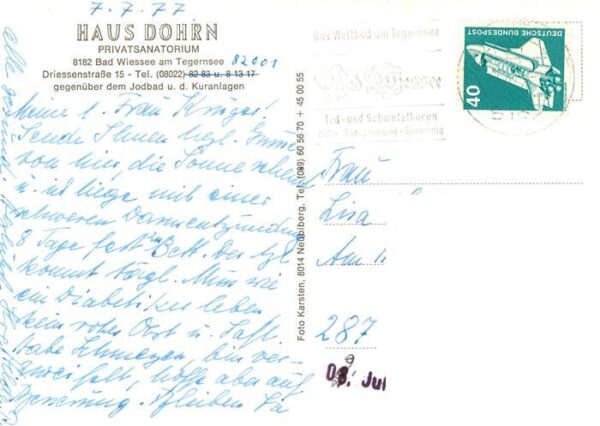 7.7.77
HAUS DOHRN
PRIVATSANATORIUM
8182 Bad Wiessee am Tegernsee
82001
Driessenstraße 15 - Tel. (08022) 82 83 u. 8 13 17
gegenüber dem Jodbad u. d. Kuranlagen
Meine l. Frau Krüger!
Sende Ihnen herzl. Grüsse
von hier, die Sonne scheint
u. ich liege mit einer
schweren Darmentzündung
8 Tage fest im Bett. Der
kommt tägl. Muss wie
ein Diabetiker leben
kein rohes Obst u. Saft.
habe Schmerzen, bin ver-
zweifelt, hoffe aber auf
Besserung. Bleiben Sie
Foto Karsten, 8014 Neubiberg, Tel. (089) 60 55 70 + 45 00 55
Das Weltbad am Tegernsee
Bad Wiessee
Jod- und Schwefelkuren
Ruhe · Entspannung · Genesung
DEUTSCHE BUNDESPOST
40
Frau
Lisa
Am
287